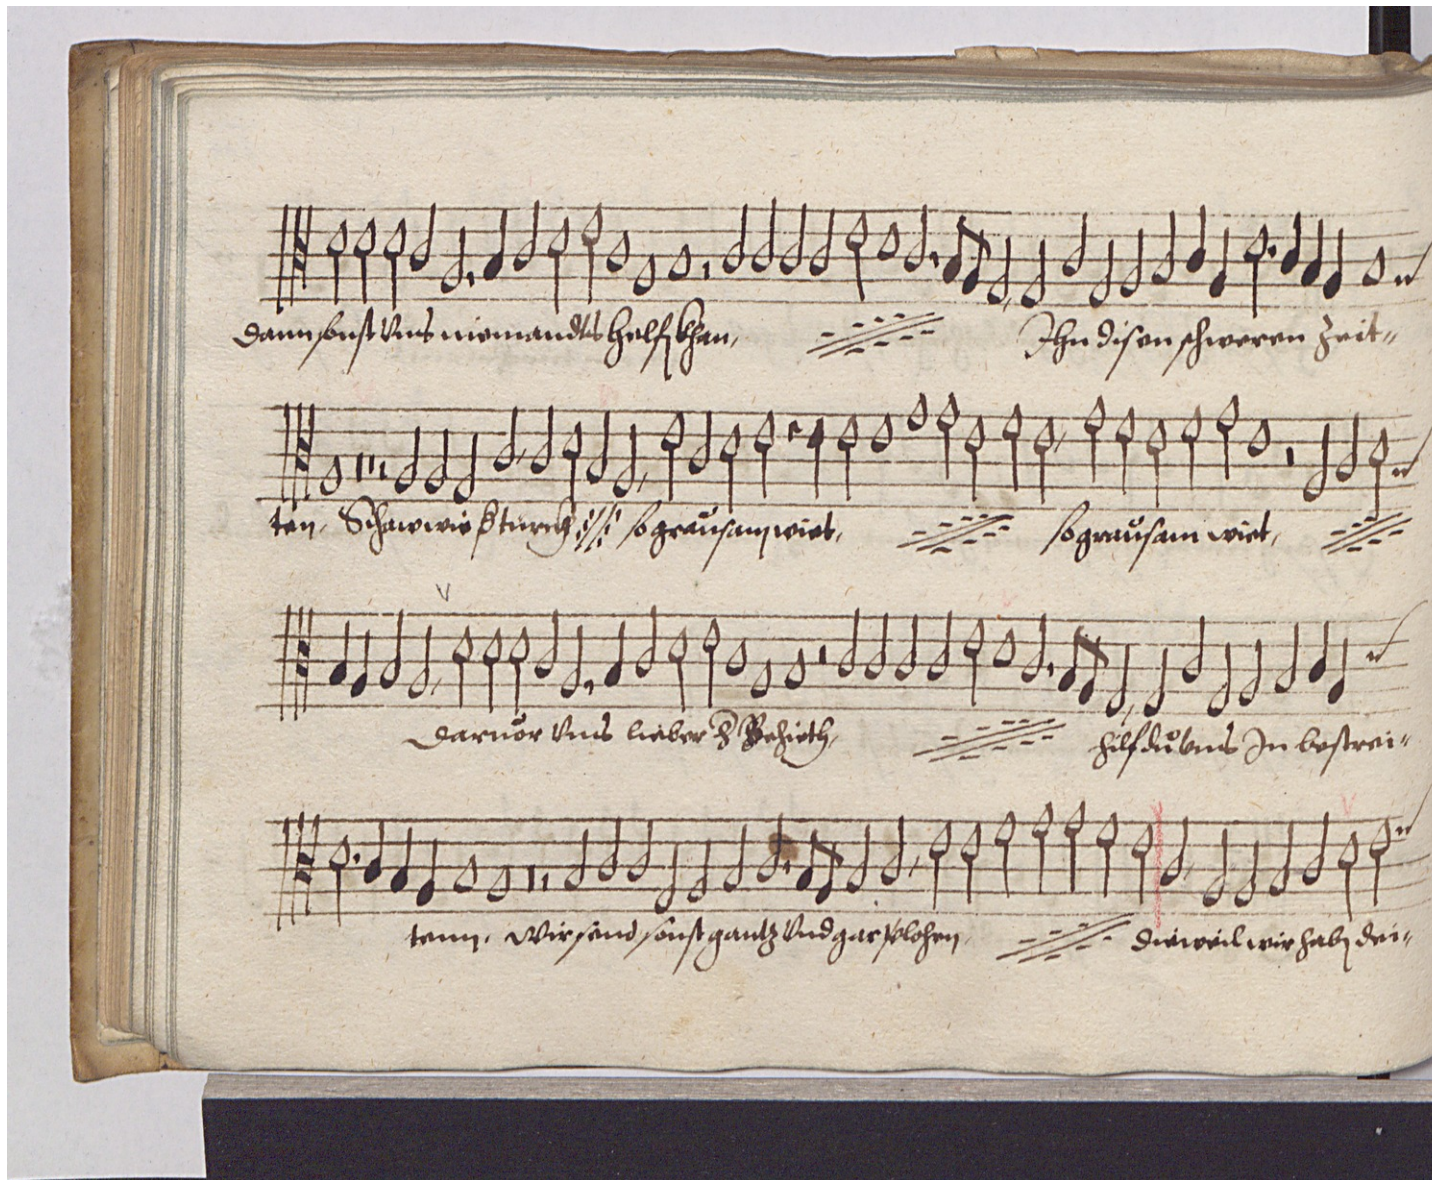 dann sonst vns niemandts helfn khan, Ihn disen schweren Zeit-
ten. Schaw wie d türckh so grausam wiet, so grausam wiet,
daruor vns lieber h behieth, hilf du vns In bestrei-
tenn. Wir seind sonst gantz vnd gar verlohrn, dieweil wir habn dei-